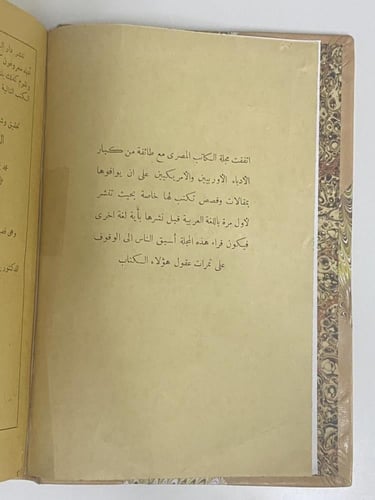 اتفقت مجلة الكاتب المصرى مع طائفة من كبار
الادباء الاوربيين والامريكيين على ان يوافوها
بمقالات وقصص تكتب لها خاصة بحيث تنشر
لاول مرة باللغة العربية قبل نشرها بأية لغة اخرى
فيكون قراء هذه المجلة أسبق الناس الى الوقوف
على ثمرات عقول هؤلاء الكتاب
تنشر دار
الكتب التالية
تحقيق
وهى
الدكتور